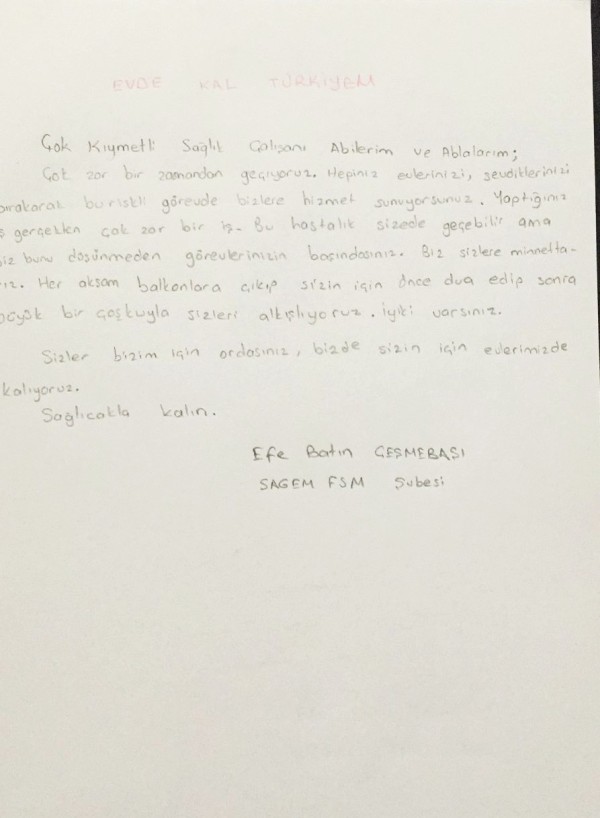 EVDE KAL TÜRKİYEM
Çok Kıymetli Sağlık Çalışanı Abilerim ve Ablalarım;
Çok zor bir zamandan geçiyoruz. Hepiniz evlerinizi, sevdiklerinizi
bırakarak bu riskli görevde bizlere hizmet sunuyorsunuz. Yaptığınız
ş gerçekten çok zor bir iş. Bu hastalık sizede geçebilir ama
iz bunu düşünmeden görevlerinizin başındasınız. Biz sizlere minnetta-
ız. Her akşam balkonlara çıkıp sizin için önce dua edip sonra
büyük bir coşkuyla sizleri alkışlıyoruz. İyiki varsınız.
Sizler bizim için ordasınız, bizde sizin için evlerimizde
kalıyoruz.
Sağlıcakla kalın.
Efe Batın ÇEŞMEBAŞI
SAGEM FSM Şubesi